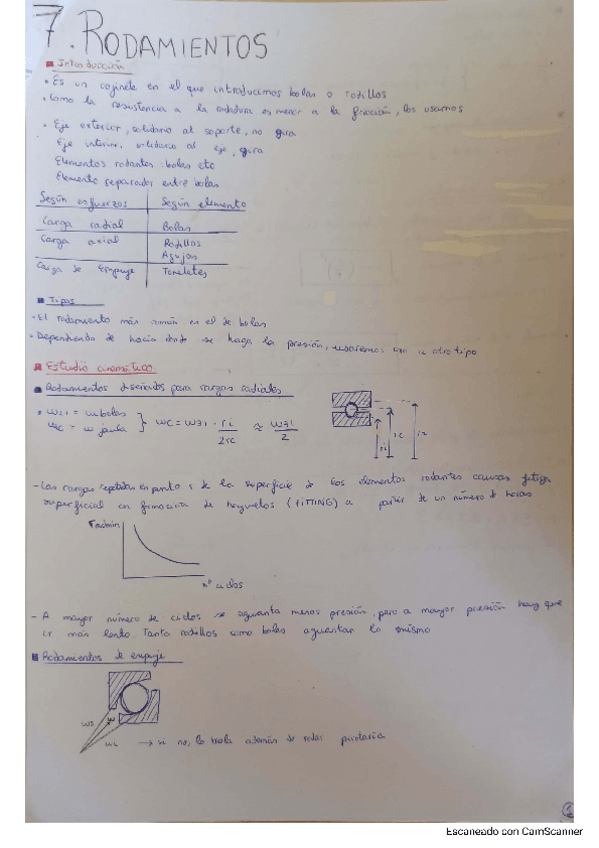 7. RODAMIENTOS
Introducción
• Es un cojinete en el que introducimos bolas o rodillos
• Como la resistencia a la rodadura es menor a la fricción, los usamos
• Eje exterior, solidario al soporte, no gira
Eje interior, solidario al eje, gira
Elementos rodantes: bolas etc
Elemento separador entre bolas
Según esfuerzos Según elemento
Carga radial Bolas
Carga axial Rodillos
Agujas
Carga de Empuje Toneletes
Tipos
• El rodamiento más común es el de bolas
• Dependiendo de hacia donde se haga la presión, usaremos uno u otro tipo
Estudio cinemático
Rodamientos diseñados para cargas radiales
= ω bolas
ωc = ω jaula
ωc = ω31 · ri / 2rc ≈ ω31 / 2
ri rc r2
- Las cargas repetidas en puntos de la superficie de los elementos rodantes causas fatiga
superficial en de hoyuelos (PITTING) a partir de un número de
σadmin
nº ciclos
- A mayor número de ciclos se aguanta menos presión, pero a mayor presión hay que
ir más lento. Tanto rodillos como bolas aguantan lo mismo
Rodamientos de empuje
→ si no, la bola además de rodar pivotaría
1
Escaneado con CamScanner